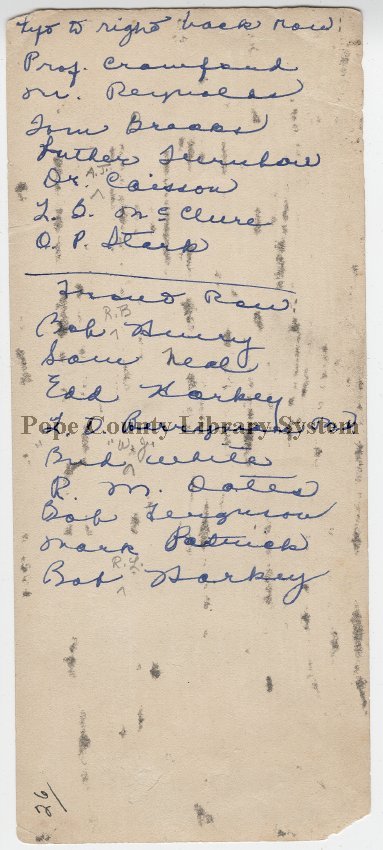 Left to right back row:
Prof. Crawford
Mr. Reynolds
Tom Brooks
Luther Turnbow
Dr. A.J. Caisson
L. D. McClure
O. P. Stark
Front Row
Bob R.B Henry
Sam Neal
Edd Harkey
Pope County Library System
L. D.
"Bud "W.J. White
R. M. Oates
Bob Ferguson
Mark Patrick
Bob R.L. Harkey
26/